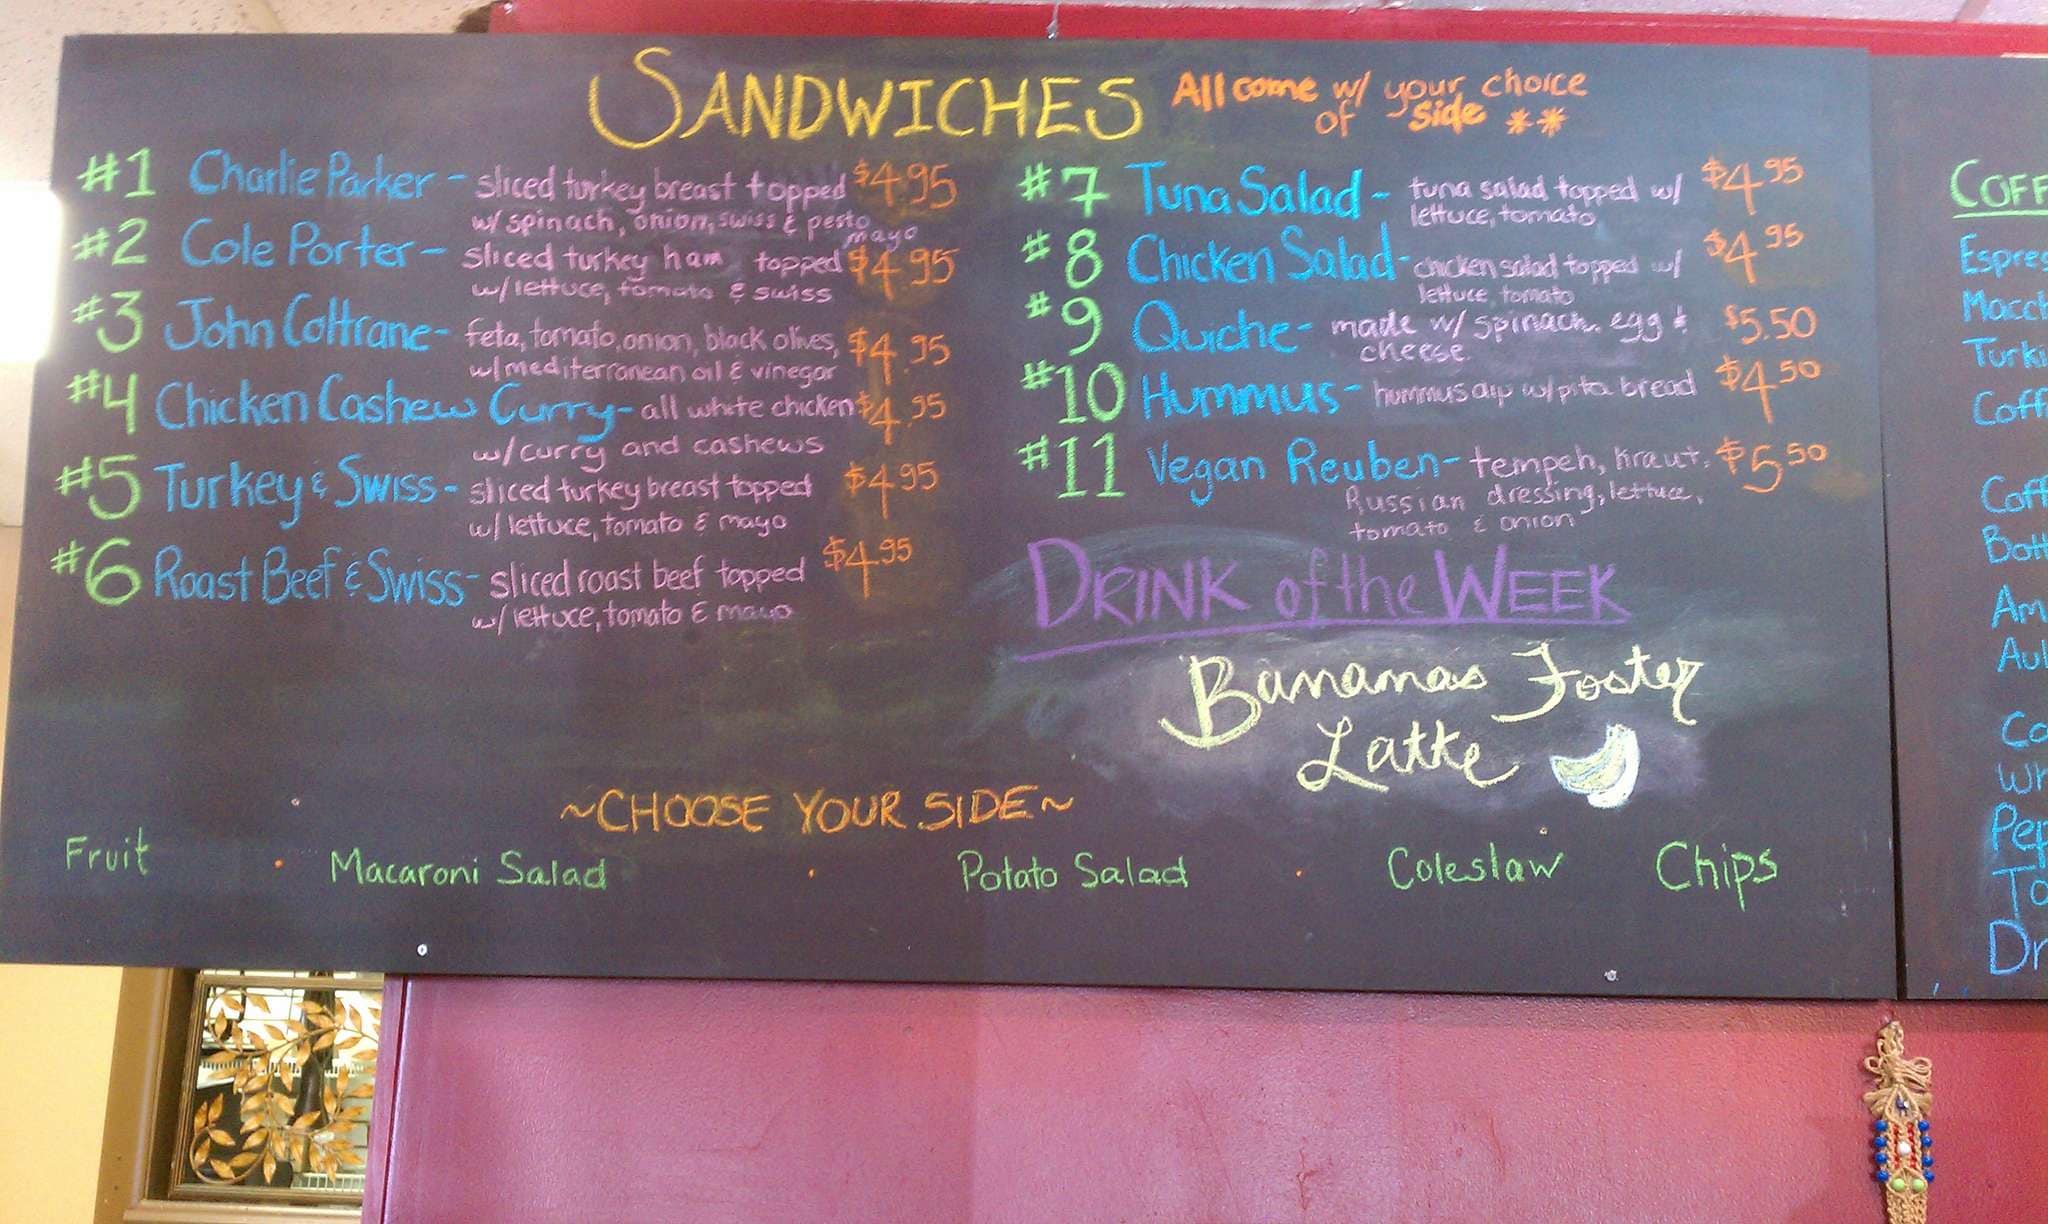 SANDWICHES
All come w/ your choice
of side **
#1 Charlie Parker - sliced turkey breast topped $4.95
w/ spinach, onion, swiss & pesto
mayo
#2 Cole Porter - sliced turkey ham topped $4.95
w/ lettuce, tomato & swiss
#3 John Coltrane - feta, tomato, onion, black olives, $4.95
w/ mediterranean oil & vinegar
#4 Chicken Cashew Curry - all white chicken $4.95
w/ curry and cashews
#5 Turkey & Swiss - sliced turkey breast topped $4.95
w/ lettuce, tomato & mayo
#6 Roast Beef & Swiss - sliced roast beef topped $4.95
w/ lettuce, tomato & mayo
#7 Tuna Salad - tuna salad topped w/ $4.95
lettuce, tomato
#8 Chicken Salad - chicken salad topped w/ $4.95
lettuce, tomato
#9 Quiche - made w/ spinach, egg & $5.50
cheese
#10 Hummus - hummus dip w/ pita bread $4.50
#11 Vegan Reuben - tempeh, kraut, $5.50
Russian dressing, lettuce,
tomato & onion
DRINK of the WEEK
Bananas Foster
Latte
~CHOOSE YOUR SIDE~
Fruit • Macaroni Salad • Potato Salad • Coleslaw Chips
COFF
Espres
Macch
Turki
Coff
Coff
Bott
Am
Aul
Co
Wh
Pep
To
Dr